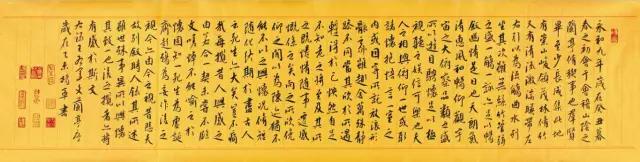 永和九年歲在癸丑暮
春之初會于會稽山陰之
蘭亭脩稧事也群賢
畢至少長咸集此地
有崇山峻領茂林脩竹
又有清流激湍映帶左
右引以為流觴曲水列
坐其次雖無絲竹管弦
之盛一觴一詠亦足以暢
敘幽情是日也天朗氣
清惠風和暢仰觀
宇宙之大俯察品類之盛
所以遊目騁懷足以極
視聽之娛信可樂也夫
人之相與俯仰一世或取
諸懷抱悟言一室之
內或因寄所託放浪形
骸之外雖趣舍萬殊靜
躁不同當其欣於所遇
暫得於己快然自足
不知老之將至及其
所之既惓情隨事遷感
慨係之矣向之所欣俛
仰之間以為陳迹猶不
能不以之興懷況脩短
隨化終期於盡古人
云死生亦大矣豈不痛
哉每攬昔人興感之
由若合一契未嘗不臨
文嗟悼不能喻之於
懷固知一死生為虛誕
齊彭殤為妄作後之
視今亦由今之視昔悲夫
故列敘時人錄其所述
雖世殊事異所以興懷
其致一也後之攬者亦將
有感於斯文
蘭亭序
歲在 書